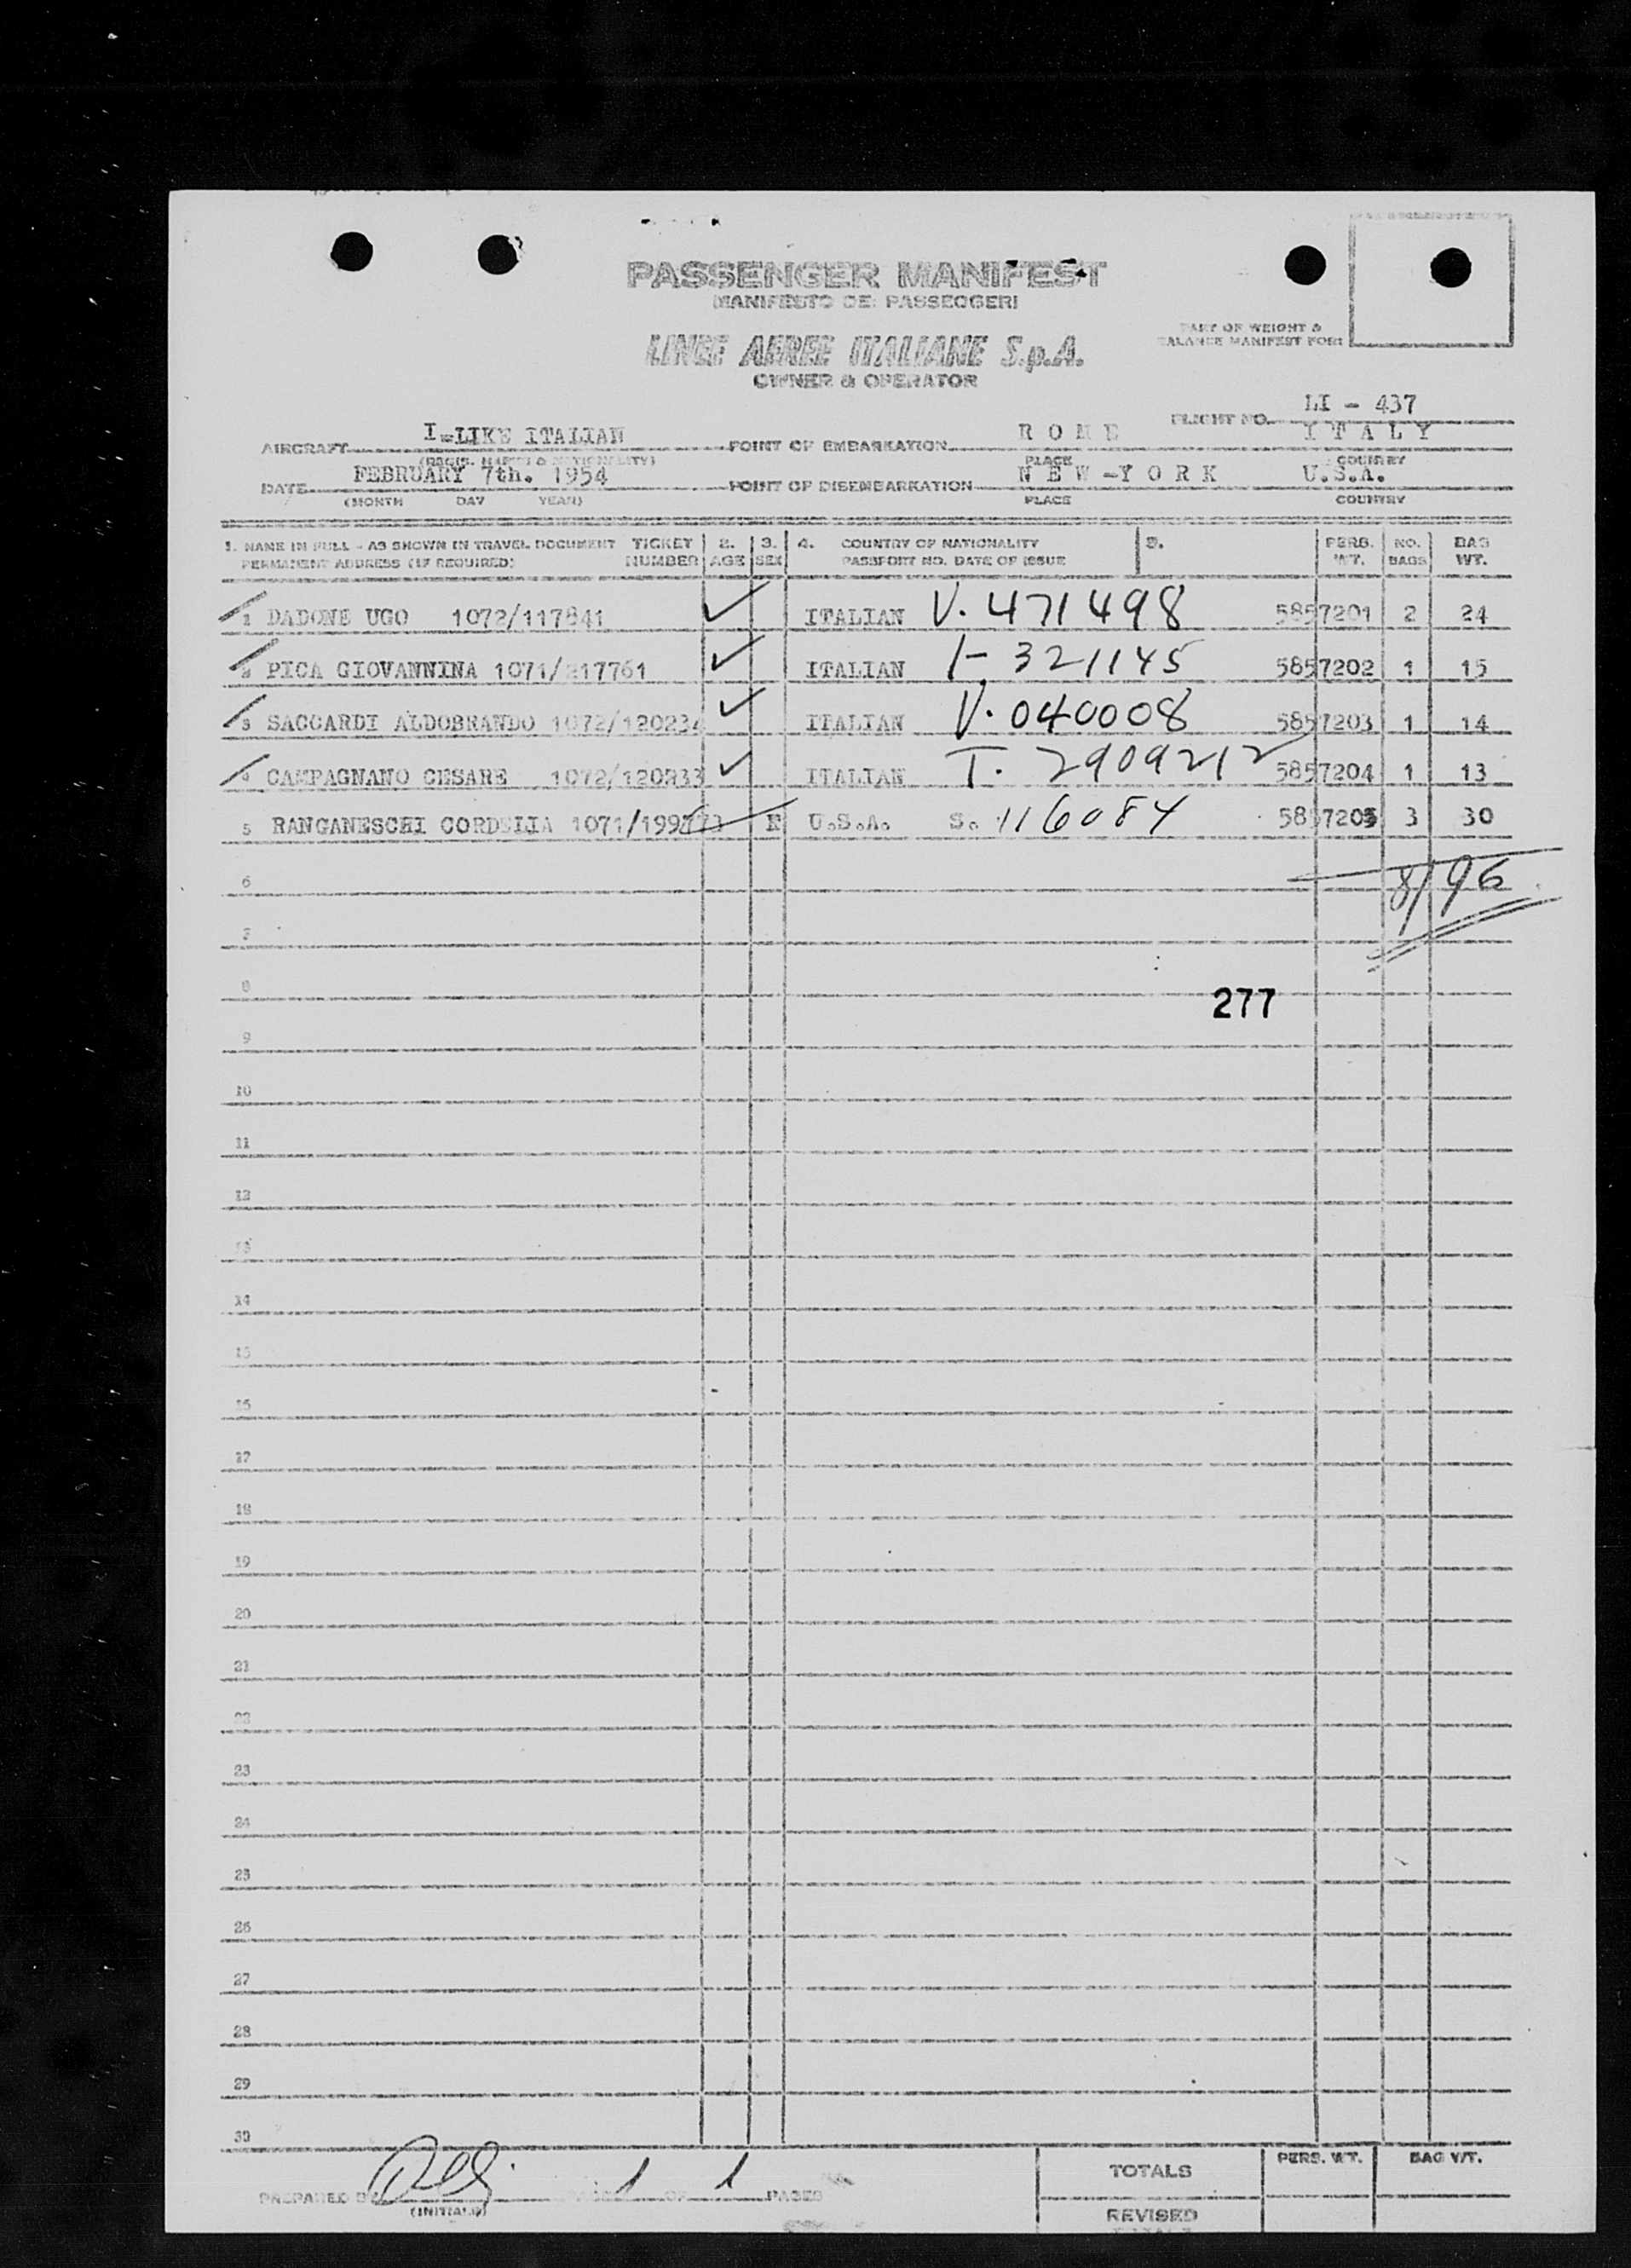 PASSENGER MANIFEST
MANIFESTO DEI PASSEGGERI
LINEE AEREE ITALIANE S.p.A.
OWNER & OPERATOR
PART OF WEIGHT &
BALANCE MANIFEST FOR:
FLIGHT NO. LI - 437
AIRCRAFT I-LIKE ITALIAN POINT OF EMBARKATION R O M E I T A L Y
(REGIS. MARKS & NATIONALITY) PLACE COUNTRY
DATE FEBRUARY 7th. 1954 POINT OF DISEMBARKATION N E W -Y O R K U.S.A.
(MONTH DAY YEAR) PLACE COUNTRY
1. NAME IN FULL - AS SHOWN IN TRAVEL DOCUMENT TICKET 2. 3. 4. COUNTRY OF NATIONALITY 5. PERS. NO. BAG
PERMANENT ADDRESS (IF REQUIRED) NUMBER AGE SEX PASSPORT NO. DATE OF ISSUE WT. BAGS WT.
1 DADONE UGO 1072/117841 ITALIAN V. 471498 5857201 2 24
2 PICA GIOVANNINA 1071/217761 ITALIAN 321145 5857202 1 15
3 SACCARDI ALDOBRANDO 1072/120234 ITALIAN V. 040008 5857203 1 14
4 CAMPAGNANO CESARE 1072/120233 ITALIAN T. 2909212 5857204 1 13
5 RANGANESCHI CORDELIA U.S.A. S. 116084 5857205 3 30
6 8/96
7
8
277
9
10
11
12
13
14
15
16
17
18
19
20
21
22
23
24
25
26
27
28
29
30
TOTALS PERS. WT. BAG WT.
PREPARED BY PAGE 1 OF 1 PAGES
(INITIALS) REVISED